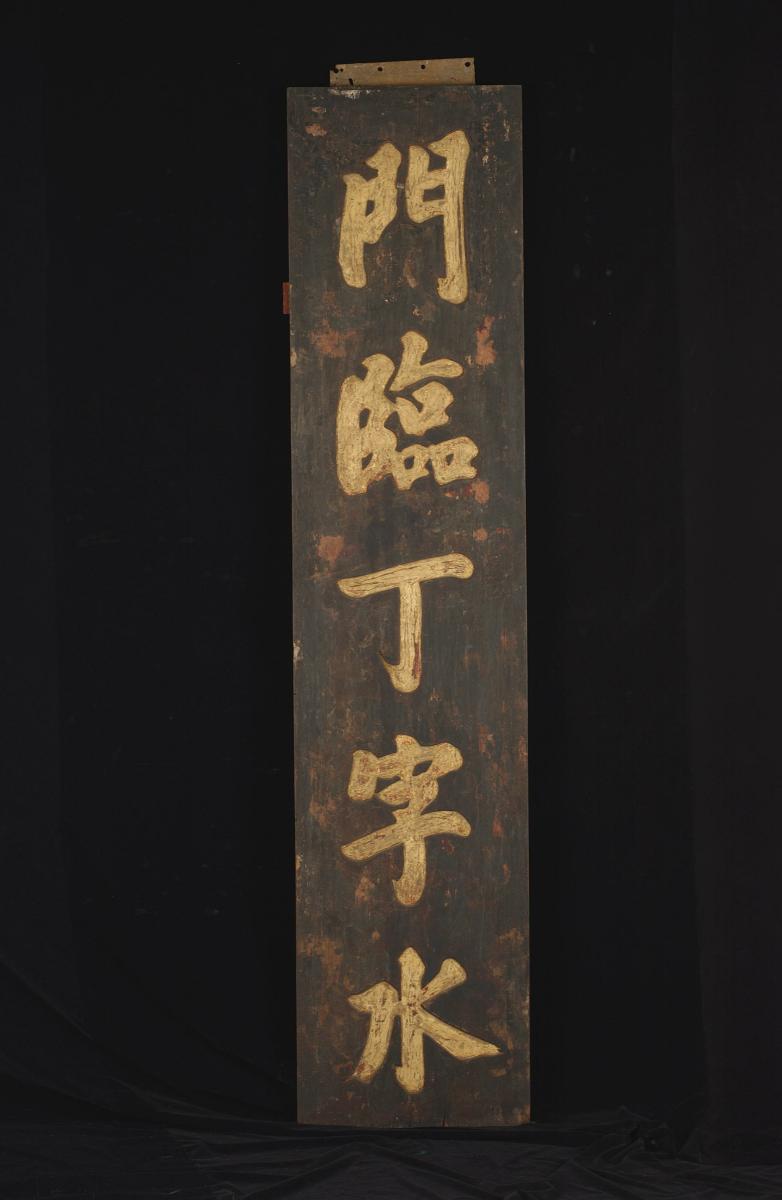 門臨丁字水